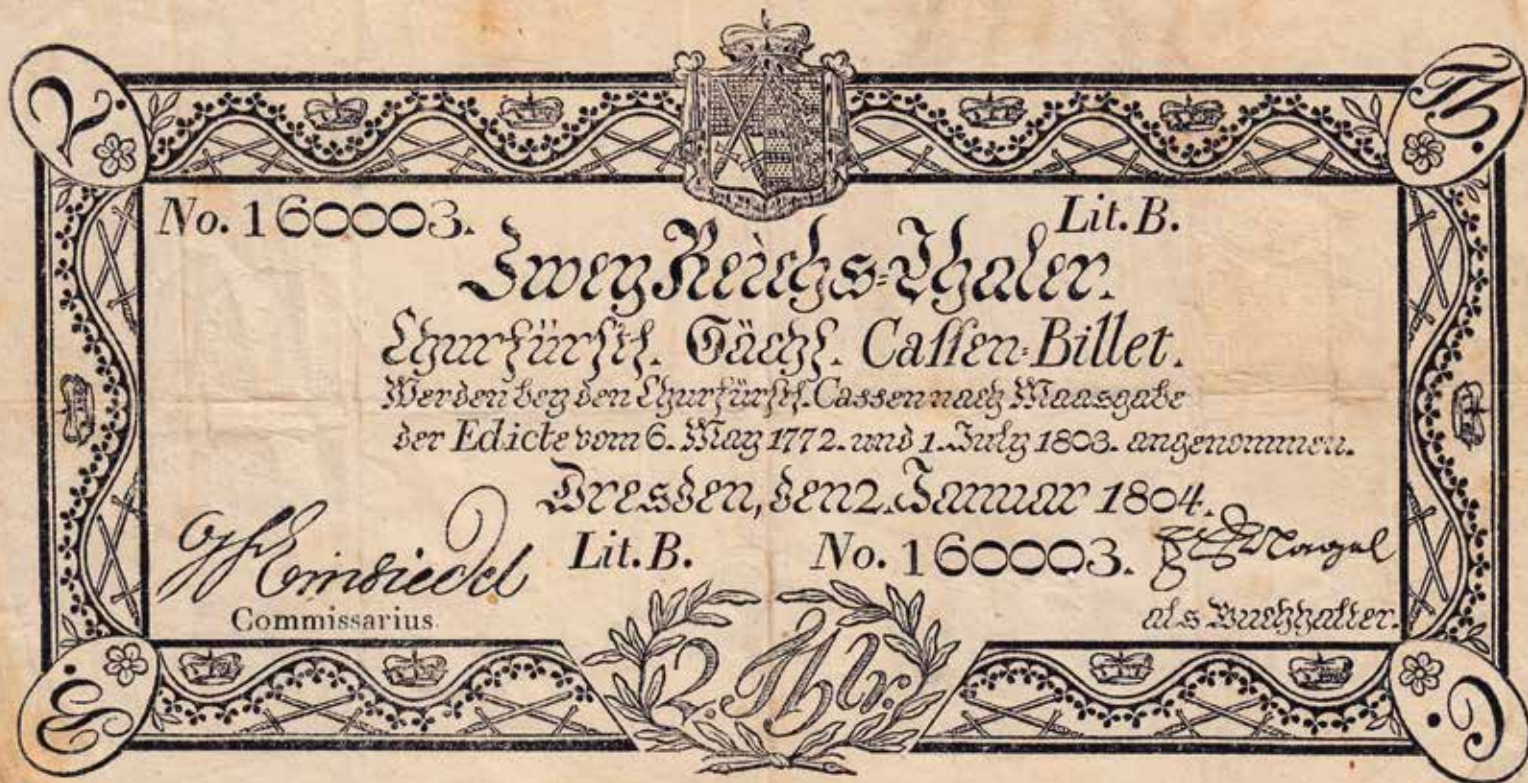 2. Th.
No. 160003. Lit. B.
Zwey Reichs-Thaler.
Churfürstl. Sächs. Cassen-Billet.
Werden bey den Churfürstl. Cassen nach Maasgabe
der Edicte vom 6. May 1772. und 1. July 1803. angenommen.
Dresden, den 2. Januar 1804.
Lit. B. No. 160003.
Einsiedel Nagel
Commissarius. als Buchhalter.
2. Thlr.